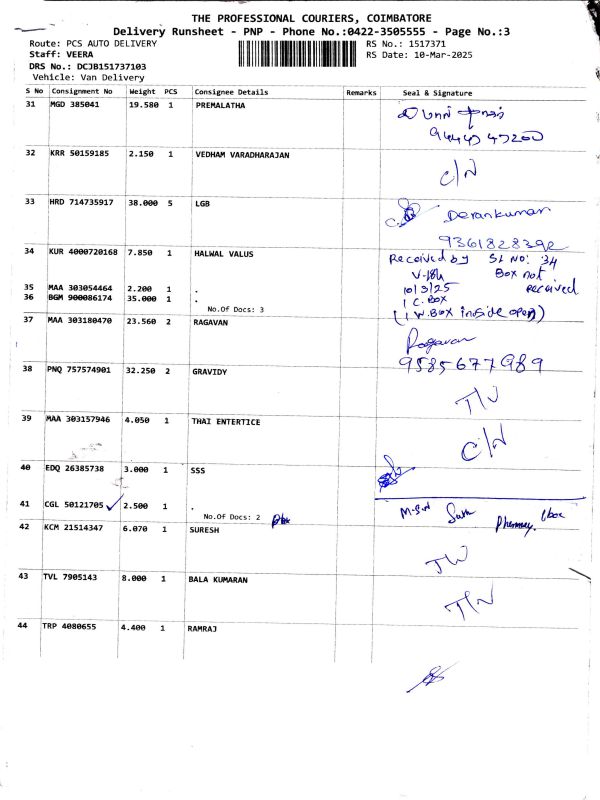 THE PROFESSIONAL COURIERS, COIMBATORE
Delivery Runsheet - PNP - Phone No.:0422-3505555 - Page No.:3
Route: PCS AUTO DELIVERY RS No.: 1517371
Staff: VEERA RS Date: 10-Mar-2025
DRS No.: DCJB151737103
Vehicle: Van Delivery
S No Consignment No Weight PCS Consignee Details Remarks Seal & Signature
31 MGD 385041 19.580 1 PREMALATHA
32 KRR 50159185 2.150 1 VEDHAM VARADHARAJAN
C/N
33 HRD 714735917 38.000 5 LGB
Devankumar
9361828392
34 KUR 4000720168 7.850 1 HALWAL VALUS
Received by Sl NO: 34
Box not
35 MAA 303054464 2.200 1 .
10/3/25 received
36 BGM 900086174 35.000 1 .
1 C.BOX
No.Of Docs: 3
(1 W.BOX inside open)
37 MAA 303180470 23.560 2 RAGAVAN
Ragavan
9585677989
38 PNQ 757574901 32.250 2 GRAVIDY
39 MAA 303157946 4.050 1 THAI ENTERTICE
C/N
40 EDQ 26385738 3.000 1 SSS
41 CGL 50121705 2.500 1 .
No.Of Docs: 2
Pharmacy
42 KCM 21514347 6.070 1 SURESH
43 TVL 7905143 8.000 1 BALA KUMARAN
44 TRP 4080655 4.400 1 RAMRAJ